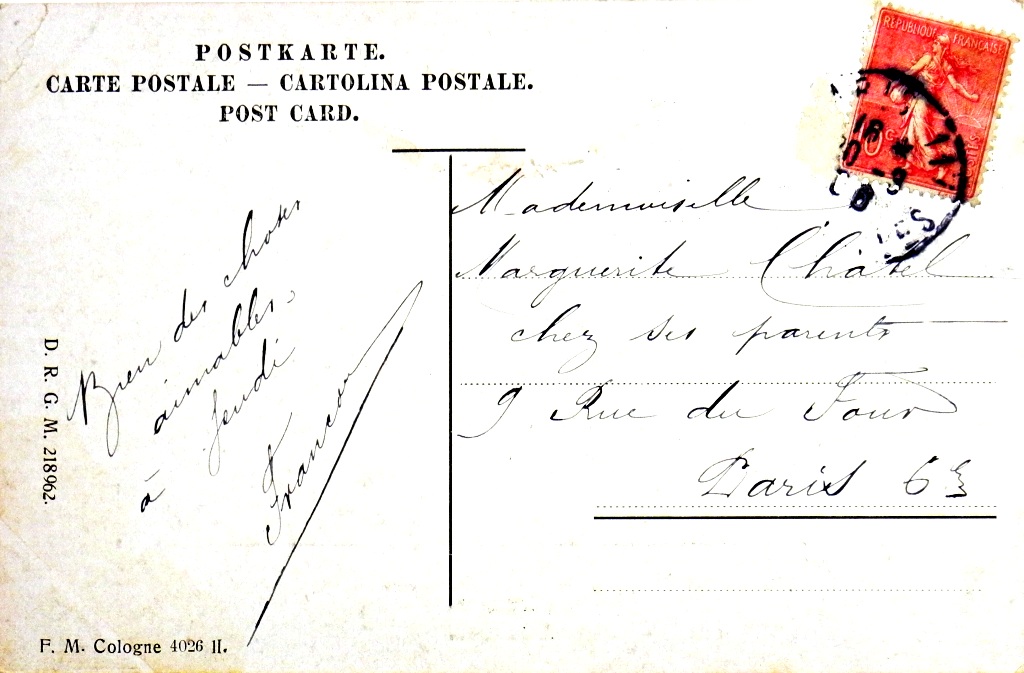 POSTKARTE.
CARTE POSTALE — CARTOLINA POSTALE.
POST CARD.
REPUBLIQUE FRANÇAISE
POSTES
10 c
18
Mademoiselle
Marguerite Châtel
chez ses parents
9 Rue du Four
Paris 6e
Bien des choses
aimables
à Jeudi
D. R. G. M. 218962.
F. M. Cologne 4026 II.